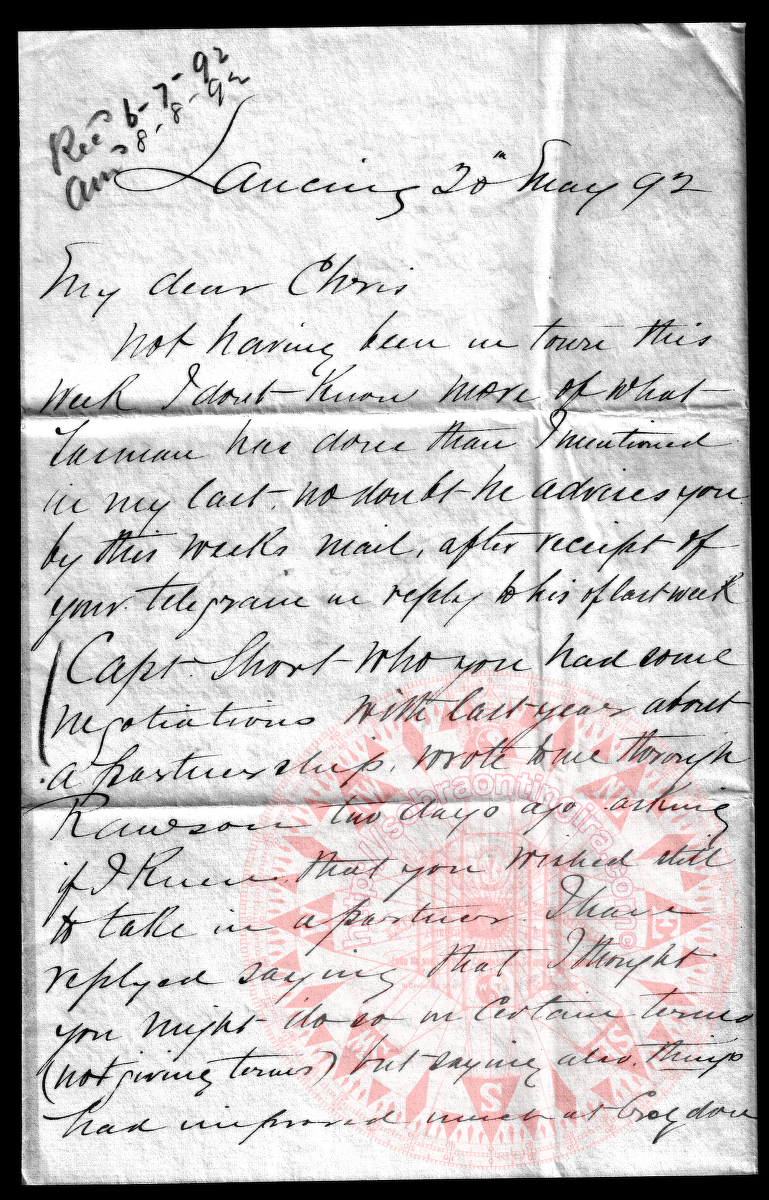 Recd 6-7-92
Ansd 8-8-92
Lancing 20th May 92
My dear Chris
not having been in town this
week I dont know more of what
Tasman has done than I mentioned
in my last. no doubt he advises you
by this weeks mail, after receipt of
your telegram in reply to his of last week
Capt. Short who you had some
negotiations with last year about
a partnership, wrote to me through
Rawson two days ago asking
if I knew that you wished still
to take in a partner. I have
replyed saying that I thought
you might do so on certain terms
(not giving terms) but saying also, things
had improved much at Croydon